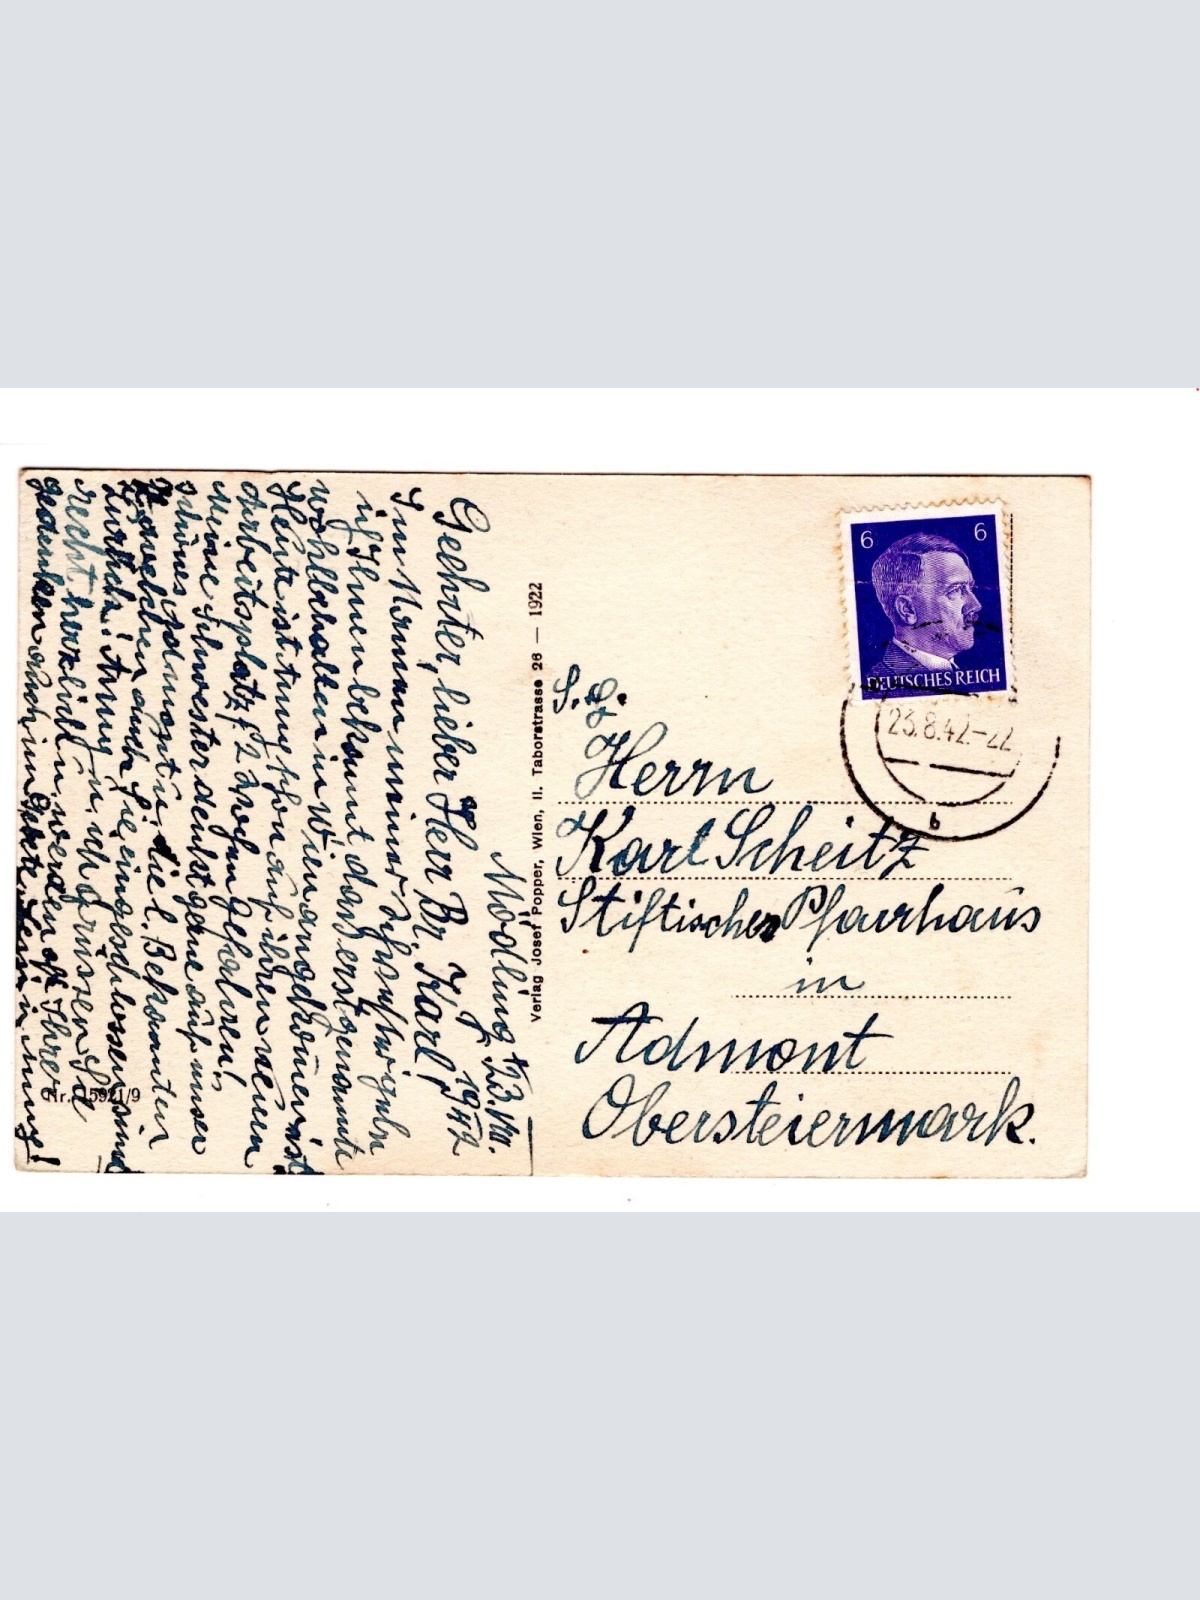 Mödling, 23. VIII.
1942
Geehrter, lieber Herr Br. Karl!
Im Namen meiner
ich Ihnen bekannt daß erstgenannte
wohlbehalten in Wien angekommen ist.
Heute ist Anny schon auf ihren neuen
Arbeitsplatz
Meine Schwester denkt gerne auf unser
schönes Admont u. die l. Bekannten
zu welchen auch Sie eingeschlossen sind
zurück. Anny u. ich grüssen Sie
recht herzlich u. werden oft Ihrer
gedenken auch im Gebete.
Nr. 15921/9
Verlag Josef Popper, Wien, II. Taborstrasse 26 — 1922
6 6
DEUTSCHES REICH
23.8.42-22
b
S. g.
Herrn
Karl Scheitz
Stiftischer Pfarrhaus
in
Admont
Obersteiermark.